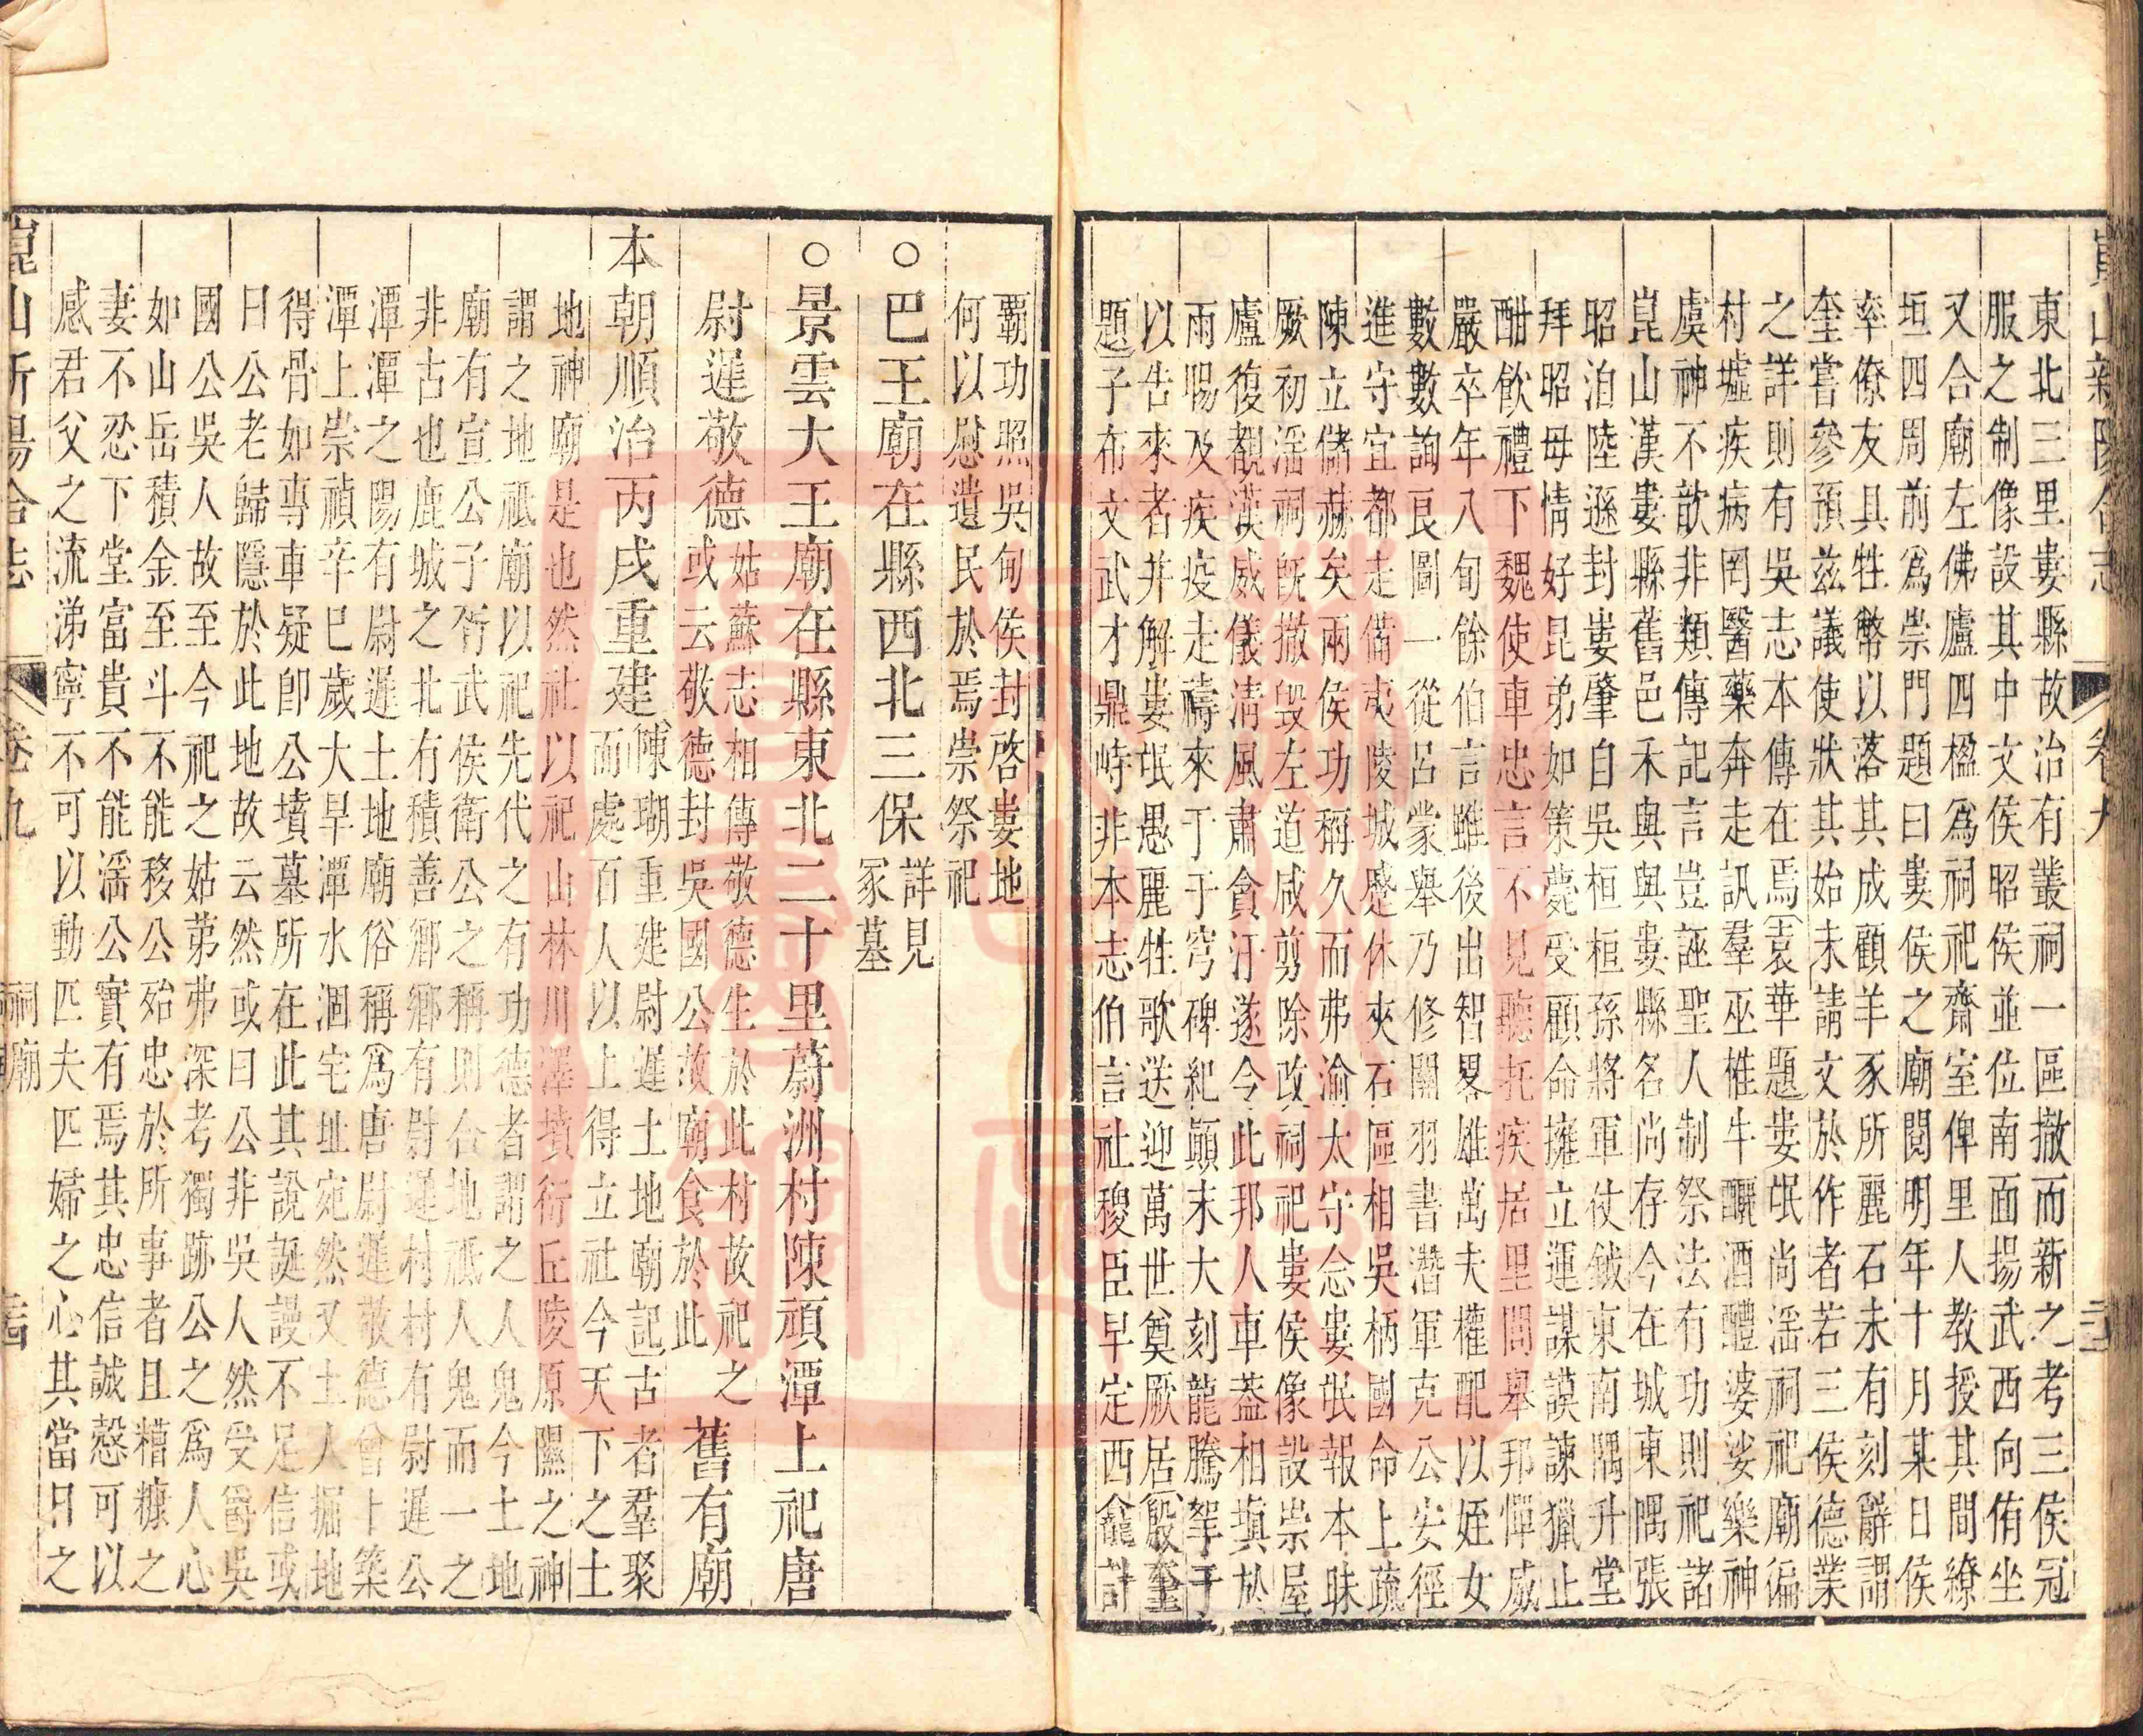 崑山新陽合志 卷九
東北三里婁縣故治有叢祠一區撤而新之考三侯冠
服之制像設其中文侯昭侯並位南面揚武西向侑坐
又合廟左佛廬四楹爲祠祀齋室俾里人教授其間繚
垣四周前爲崇門題曰婁侯之廟閱明年十月某日侯
率僚友具牲幣以落其成顧羊豕所麗石未有刻辭謂
奎嘗參預兹議使狀其始末請文於作者若三侯德業
之詳則有吳志本傳在焉袁華題婁氓尚滛祠祀廟徧
村墟疾病罔醫藥奔走訊羣巫椎牛釃酒醴婆娑樂神
虞神不歆非類傳記言豈誣聖人制祭法有功則祀諸
崑山漢婁縣舊邑禾與與婁縣名尚存今在城東隅張
昭洎陸遜封婁肇自吳桓桓孫將軍仗鉞東南隅升堂
拜昭母情好昆弟如策薨受顧命擁立運謀謨諫獵止
酣飲禮下魏使車忠言不見聽托疾居里閭舉邦憚威
嚴卒年八旬餘伯言雖後出智畧雄萬夫權配以姪女
數數詢良圖一從呂蒙舉乃修關羽書潛軍克公安徑
進守宜都走備夷陵城蹙休夾石區相吳柄國命上疏
陳立儲赫矣兩侯功稱久而弗渝太守念婁氓報本昧
厥初滛祠旣撤毁左道咸剪除改祠祀婁侯像設崇屋
廬復覩漢威儀淸風肅貪汙遂令此邦人車葢相塡於
雨暘及疾疫走禱來于于穹碑紀顚末大刻龍騰挐于
以告來者并解婁氓愚麗牲歌送迎萬世奠厥居殷奎
題子布文武才鼎峙非本志伯言社稷臣早定西龕計
覇功照吳甸侯封啓婁地
何以慰遺民於焉崇祭祀
○巴王廟在縣西北三保詳見
冢墓
○景雲大王廟在縣東北二十里蔚洲村陳頑潭上祀唐
尉遲敬德姑蘇志相傳敬德生於此村故祀之
或云敬德封吳國公故廟食於此舊有廟
本朝順治丙戌重建陳瑚重建尉遲土地廟記古者羣聚
而處百人以上得立社今天下之土
地神廟是也然社以祀山林川澤墳衍丘陵原隰之神
謂之地祇廟以祀先代之有功德者謂之人鬼今土地
廟有宣公子胥武侯衛公之稱則合地祇人鬼而一之
非古也鹿城之北有積善鄉鄉有尉遲村村有尉遲公
潭潭之陽有尉遲土地廟俗稱爲唐尉遲敬德曾卜築
潭上崇禎辛巳歲大旱潭水涸宅址宛然又土人掘地
得骨如專車疑卽公墳墓所在此其說誕謾不足信或
曰公老歸隱於此地故云然或曰公非吳人然受爵吳
國公吳人故至今祀之姑弟弗深考獨跡公之爲人心
如山岳積金至斗不能移公殆忠於所事者且糟糠之
妻不忍下堂富貴不能滛公實有焉其忠信誠慤可以
感君父之流涕寧不可以動匹夫匹婦之心其當日之
崑山新陽合志 卷九 祠廟